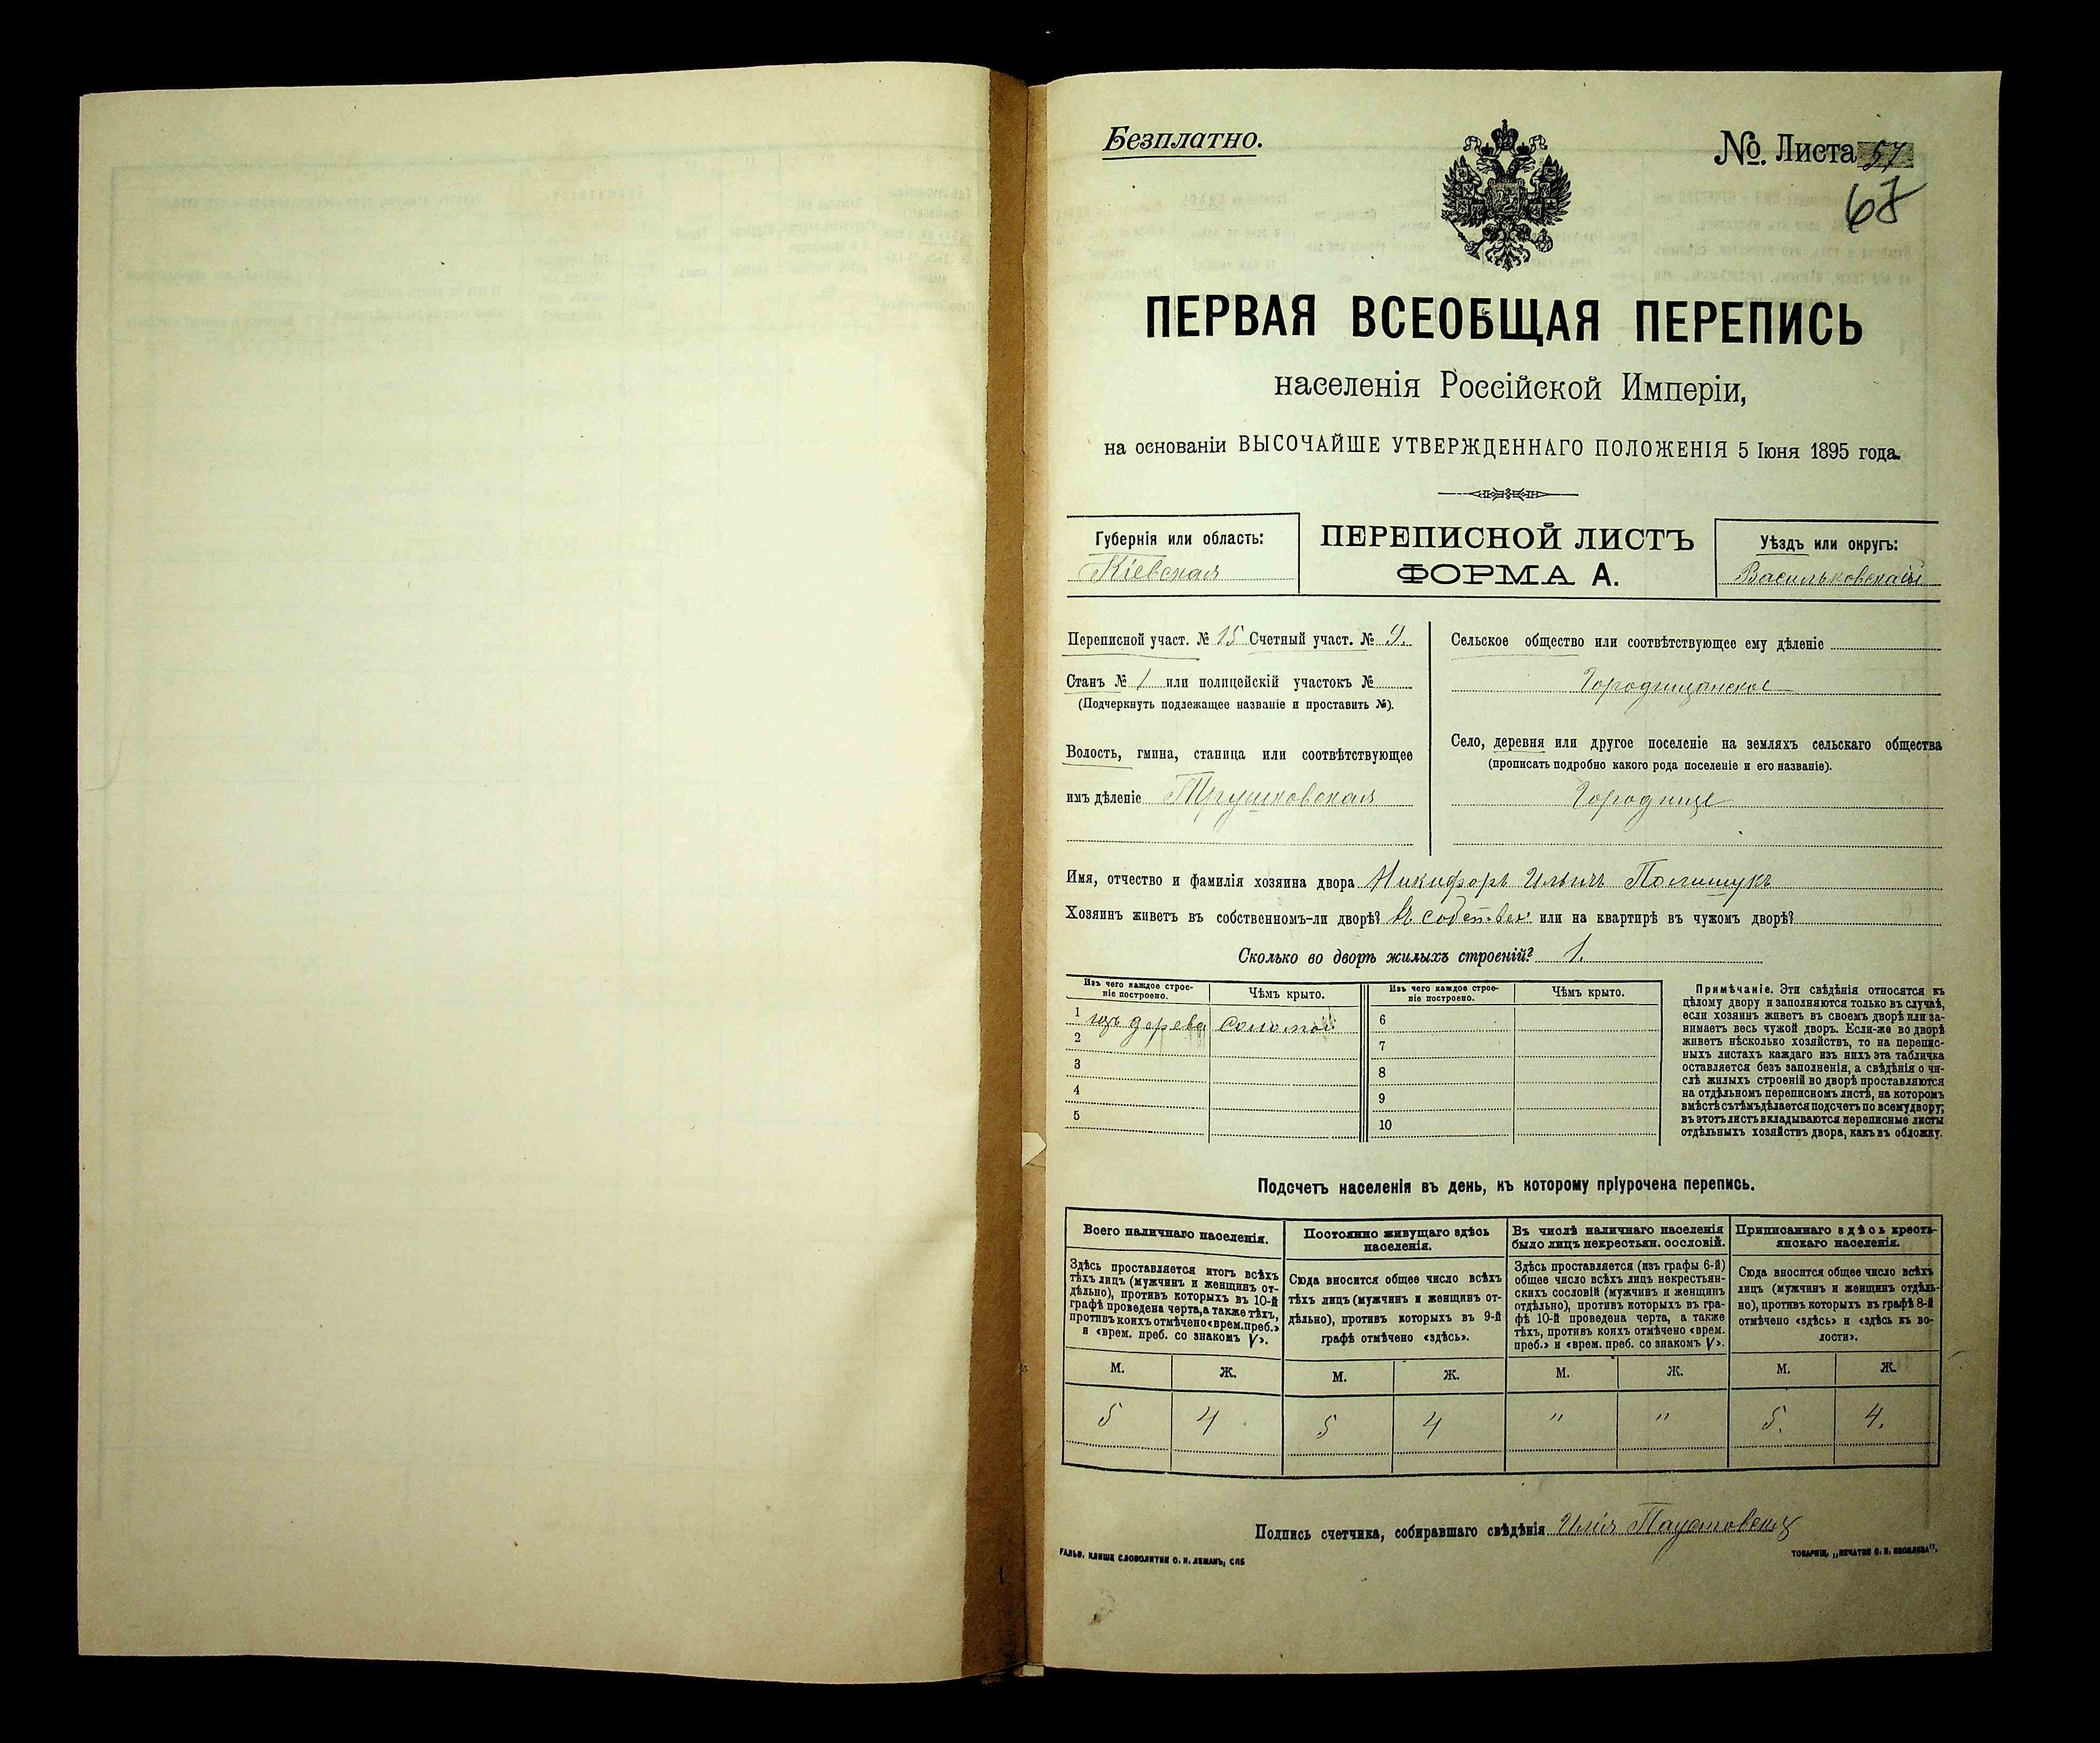 Безплатно.
№. Листа 57
67
ПЕРВАЯ ВСЕОБЩАЯ ПЕРЕПИСЬ
населенія Россійской Имперіи,
на основаніи ВЫСОЧАЙШЕ УТВЕРЖДЕННАГО ПОЛОЖЕНІЯ 5 Іюня 1895 года.
Губернія или область:
Кіевская
ПЕРЕПИСНОЙ ЛИСТЪ
ФОРМА А.
Уѣздъ или округъ:
Васильковскій
Переписной участ. № 15 Счетный участ. № 9.
Станъ № 1 или полицейскій участокъ №
(Подчеркнуть подлежащее названіе и проставить №).
Волость, гмина, станица или соотвѣтствующее
имъ дѣленіе Трушковская
Сельское общество или соотвѣтствующее ему дѣленіе
Городищанское
Село, деревня или другое поселеніе на земляхъ сельскаго общества
(прописать подробно какого рода поселеніе и его названіе).
Городище
Имя, отчество и фамилія хозяина двора Никифоръ Ильичъ Полищукъ
Хозяинъ живетъ въ собственномъ-ли дворѣ? въ собствен или на квартирѣ въ чужомъ дворѣ?
Сколько во дворѣ жилыхъ строеній? 1.
Изъ чего каждое строе-
ніе построено.
Чѣмъ крыто.
Изъ чего каждое строе-
ніе построено.
Чѣмъ крыто.
1 изъ дерева соломой
2
3
4
5
6
7
8
9
10
Примѣчаніе. Эти свѣдѣнія относятся къ
цѣлому двору и заполняются только въ случаѣ,
если хозяинъ живетъ въ своемъ дворѣ или за-
нимаетъ весь чужой дворъ. Если-же во дворѣ
живетъ нѣсколько хозяйствъ, то на перепис-
ныхъ листахъ каждаго изъ нихъ эта табличка
оставляется безъ заполненія, а свѣдѣнія о чи-
слѣ жилыхъ строеній во дворѣ проставляются
на отдѣльномъ переписномъ листѣ, на которомъ
вмѣстѣ съ тѣмъ дѣлается подсчетъ по всему двору;
въ этотъ листъ вкладываются переписные листы
отдѣльныхъ хозяйствъ двора, какъ въ обложку.
Подсчетъ населенія въ день, къ которому пріурочена перепись.
Всего наличнаго населенія.
Здѣсь проставляется итогъ всѣхъ
тѣхъ лицъ (мужчинъ и женщинъ от-
дѣльно), противъ которыхъ въ 10-й
графѣ проведена черта, а также тѣхъ,
противъ коихъ отмѣчено «врем. преб.»
и «врем. преб. со знакомъ V».
Постоянно живущаго здѣсь
населенія.
Сюда вносится общее число всѣхъ
тѣхъ лицъ (мужчинъ и женщинъ от-
дѣльно), противъ которыхъ въ 9-й
графѣ отмѣчено «здѣсь».
Въ числѣ наличнаго населенія
было лицъ некрестьян. сословій.
Здѣсь проставляется (изъ графы 6-й)
общее число всѣхъ лицъ некрестьян-
скихъ сословій (мужчинъ и женщинъ
отдѣльно), противъ которыхъ въ гра-
фѣ 10-й проведена черта, а также
тѣхъ, противъ коихъ отмѣчено «врем.
преб.» и «врем. преб. со знакомъ V».
Приписаннаго здѣсь кресть-
янскаго населенія.
Сюда вносится общее число всѣхъ
лицъ (мужчинъ и женщинъ отдѣль-
но), противъ которыхъ въ графѣ 8-й
отмѣчено «здѣсь» и «здѣсь къ во-
лости».
М. Ж. М. Ж. М. Ж. М. Ж.
5 4 5 4 " " 5. 4.
Подпись счетчика, собиравшаго свѣдѣнія Илія Паустовскій
ГАЛЬВ. КЛИШЕ СЛОВОЛИТНИ О. И. ЛЕМАНЪ, СПБ
ТОВАРИЩ. „ПЕЧАТНЯ С. П. ЯКОВЛЕВА".